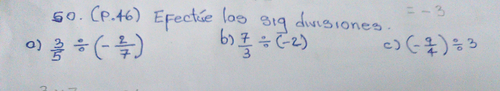 = -3
50. (P.46) Efectúe las sig divisiones.
a) 3/5 ÷ (-2/7) b) 7/3 ÷ (-2) c) (-9/4) ÷ 3